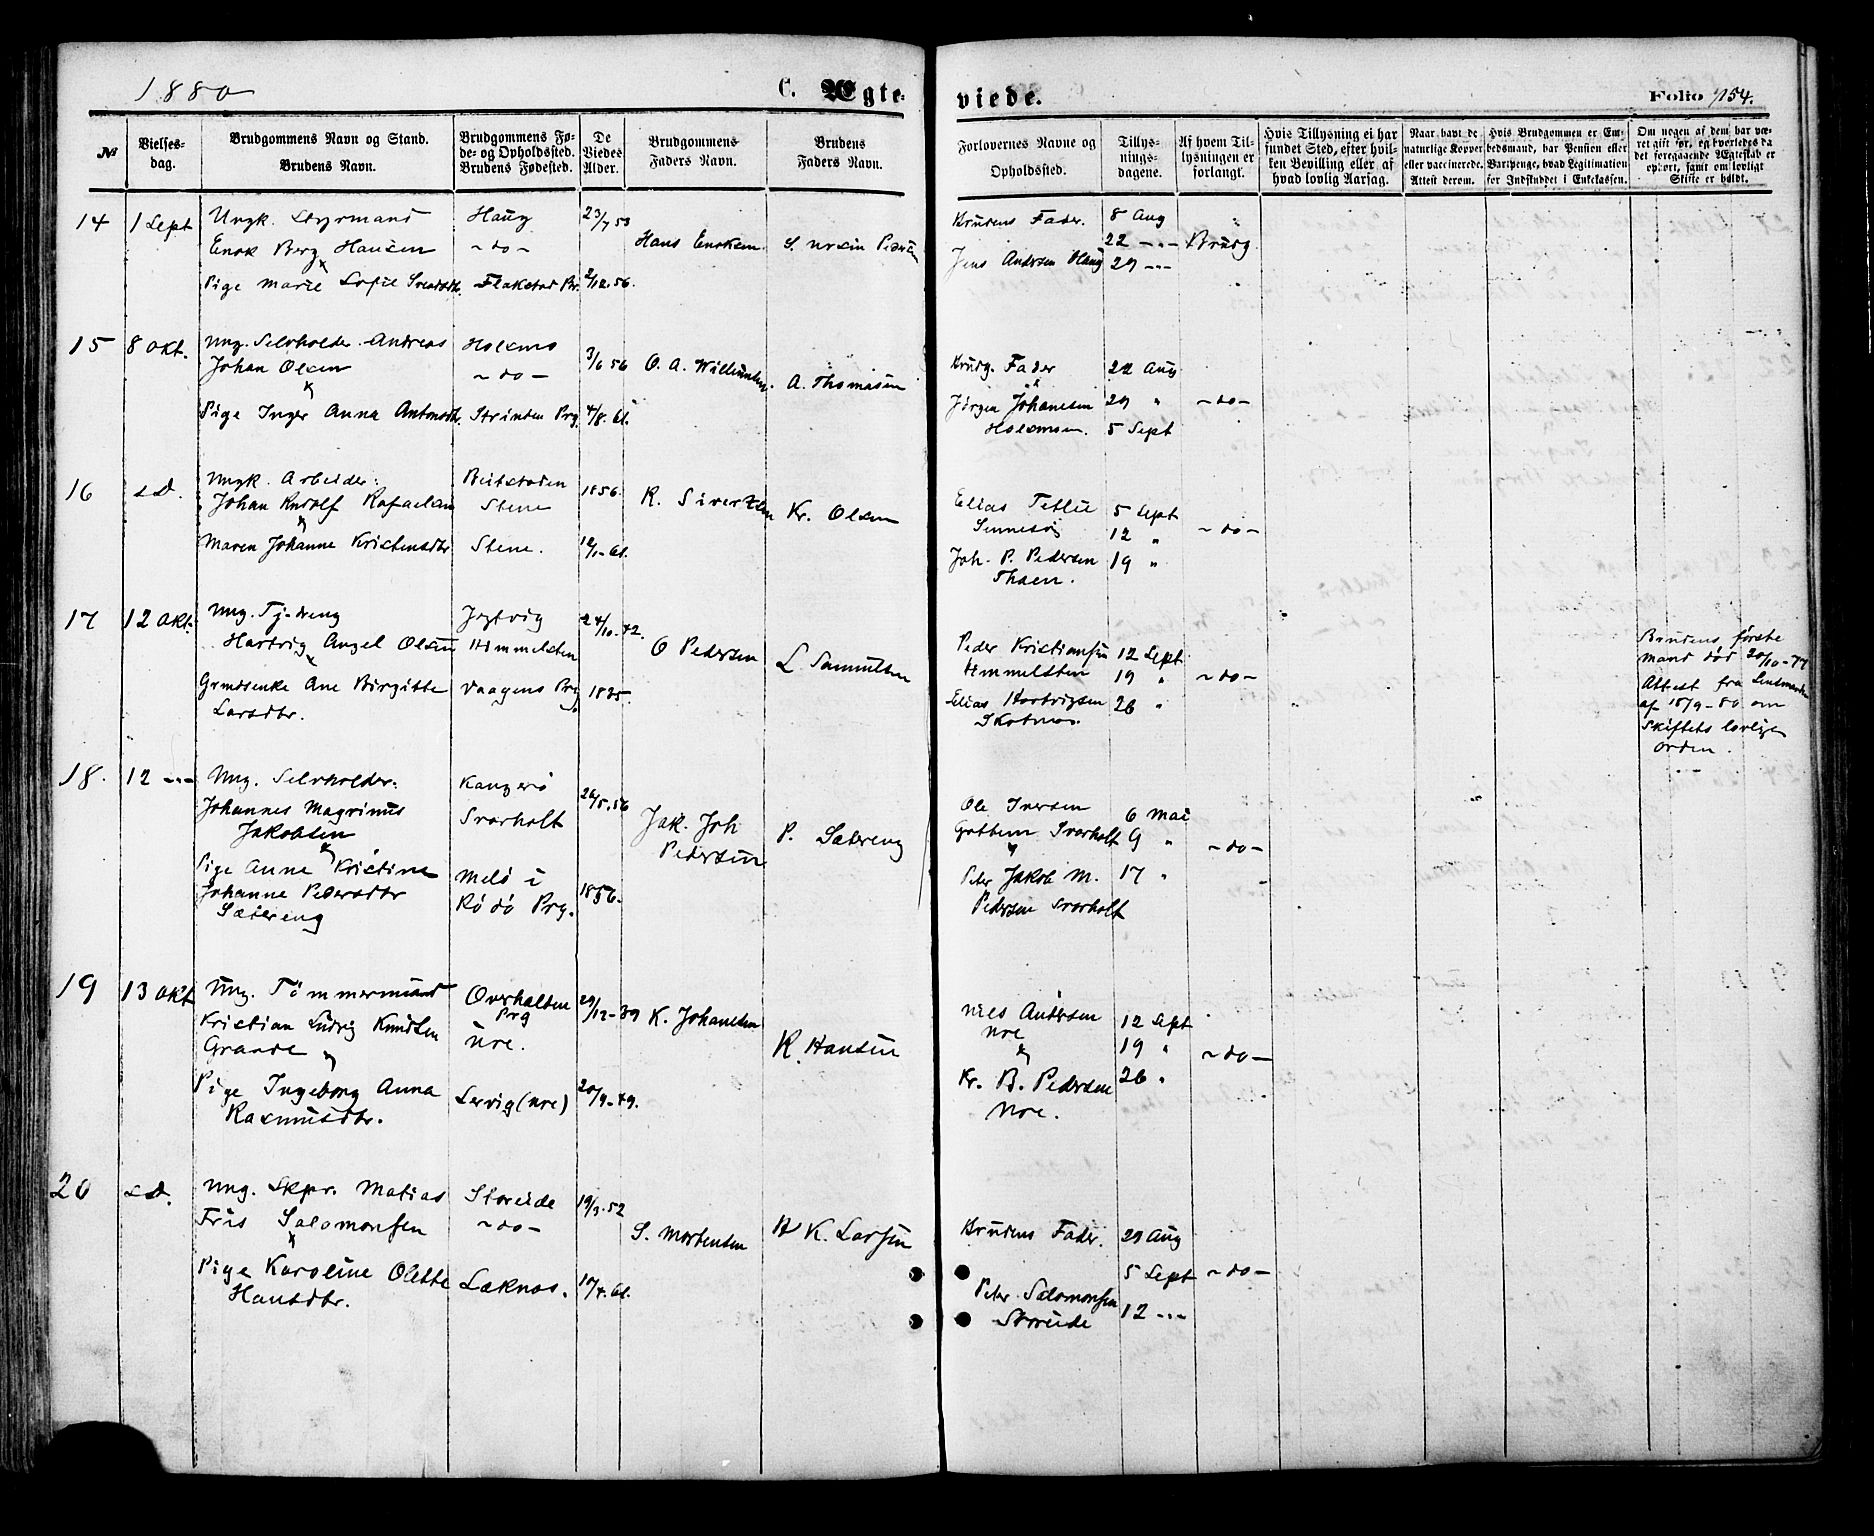 1880
C. Ægte-
viede.
Folio 154.
№
Vielses-
dag.
Brudgommens Navn og Stand.
Brudens Navn.
Brudgommens Fø-
de- og Opholdssted.
Brudens Fødested.
De
Viedes
Alder.
Brudgommens
Faders Navn.
Brudens
Faders Navn.
Forlovernes Navne og
Opholdssted.
Tillys-
nings-
dagene.
Af hvem Til-
lysningen er
forlangt.
Hvis Tillysning ei har
fundet Sted, efter hvil-
ken Bevilling eller af
hvad lovlig Aarsag.
Naar havt de
naturlige Kopper
eller vaccinerede.
Attest derom.
Hvis Brudgommen er Em-
bedsmand, har Pension eller
Vartpenge, hvad Legitimation
for Indskuddet i Enkekassen.
Om nogen af dem har væ-
ret gift før, og hvorledes da
det foregaaende Ægteskab er
ophørt, samt om lovligt
Skifte er holdt.
14
1 Sept
Ungk. Styrmand
Enok Berg Hansen
&
Pige Marie Sofie
Haug
- do -
Flakstad Pr.
23/7 53
2/12. 56.
Hans Enoksen
Brudens Fader.
Jens Andersen Haug
8 Aug
22 -"-
29 -"-
Brudg.
15
8 Okt.
Ung. Selvholder Andreas
Johan Olsen
&
Pige Inger Anna
Holsmo
- do -
Strinden Prg.
3/6 56
4/8. 61.
O. A. Willumsen
A. Thomasen
Brudg. Fader
&
Jörgen Johansen
Holsmoen.
22 Aug
29 "
5 Sept
- do -
16
s. D.
Ungk. Arbeider:
Johan Rudolf Rafaelsen
&
Maren Johanne Kristensdtr
Beitstaden
Stene
Stene.
1856.
12/1- 61.
R. Sivertsen
Kr. Olsen
Elias Tetlie
Joh. P. Pedersen
Thoen.
5 Sept
12 "
19 "
- do -
17
12 Okt.
Ung. Tj-dreng
Hartvig Angel Olsen
&
Ane Birgitte
Larsdtr.
Jegtvig
Himmelsten
Vaagens Prg.
24/10. 42.
1825.
O Pedersen
L. Samuelsen
Peder Kristiansen
Himmelsten
Elias Hartvigsen
Skotnes.
12 Sept
19 "
26 "
- do -
Brudens første
mand død 20/10-77
Attest fra Lensmanden
af 15/9-80 om
Skiftets lovlige
orden.
18.
12 -"-
Ung. Selvholder:
Johannes Magrinus
Jakobsen
&
Pige Anne Kristine
Johanne Pedersdtr
Sætereng
Kangerö
Svarholt
Melö i
Rödö Prg.
26/5. 56
1856.
Jak. Joh
Pedersen
P. Sætereng
Ole Iversen
Svarholt
&
Peter Jakob M.
Pedersen Svarholt
6 Mai
9 "
17 "
- do -
19
13 Okt
Ung. Tömmermand
Kristian Ludvig Knudsen
Grande &
Pige Ingeborg Anna
Rasmusdtr.
Overhalten
Prg
Ure.
Lervig (Ure)
29/12-39
20/9-49.
K. Johansen
R. Hansen
Niels Andersen
Ure
&
Kr. B. Pedersen
Ure.
12 Sept
19 "
26 "
- do -
20
s. D.
Ung. Skpr. Matias
Friis Salomonsen
&
Pige Karoline Olette
Hansdtr.
Storeide
- do -
Læknes.
19/3. 52
10/4. 61.
S. Mortensen
H K. Larsen
Brudens Fader.
Peter Salomonsen
Storeide
29 Aug
5 Sept
12 -"-
- do -